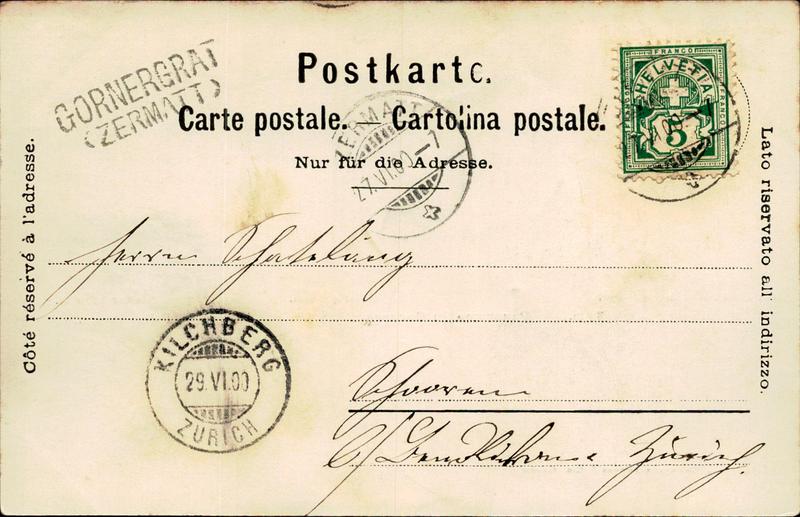 FRANCO
HELVETIA
5
Postkarte.
GORNERGRAT
(ZERMATT)
Carte postale. Cartolina postale.
ZERMATT
27.VI.00.-7
Nur für die Adresse.
Côté réservé à l'adresse.
Lato riservato all' indirizzo.
Herrn
KILCHBERG
29.VI.00
ZÜRICH
Schooren
Zürich.